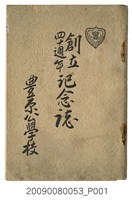 創立
四十週年
記念誌
豊原公學校
20090080053_P001